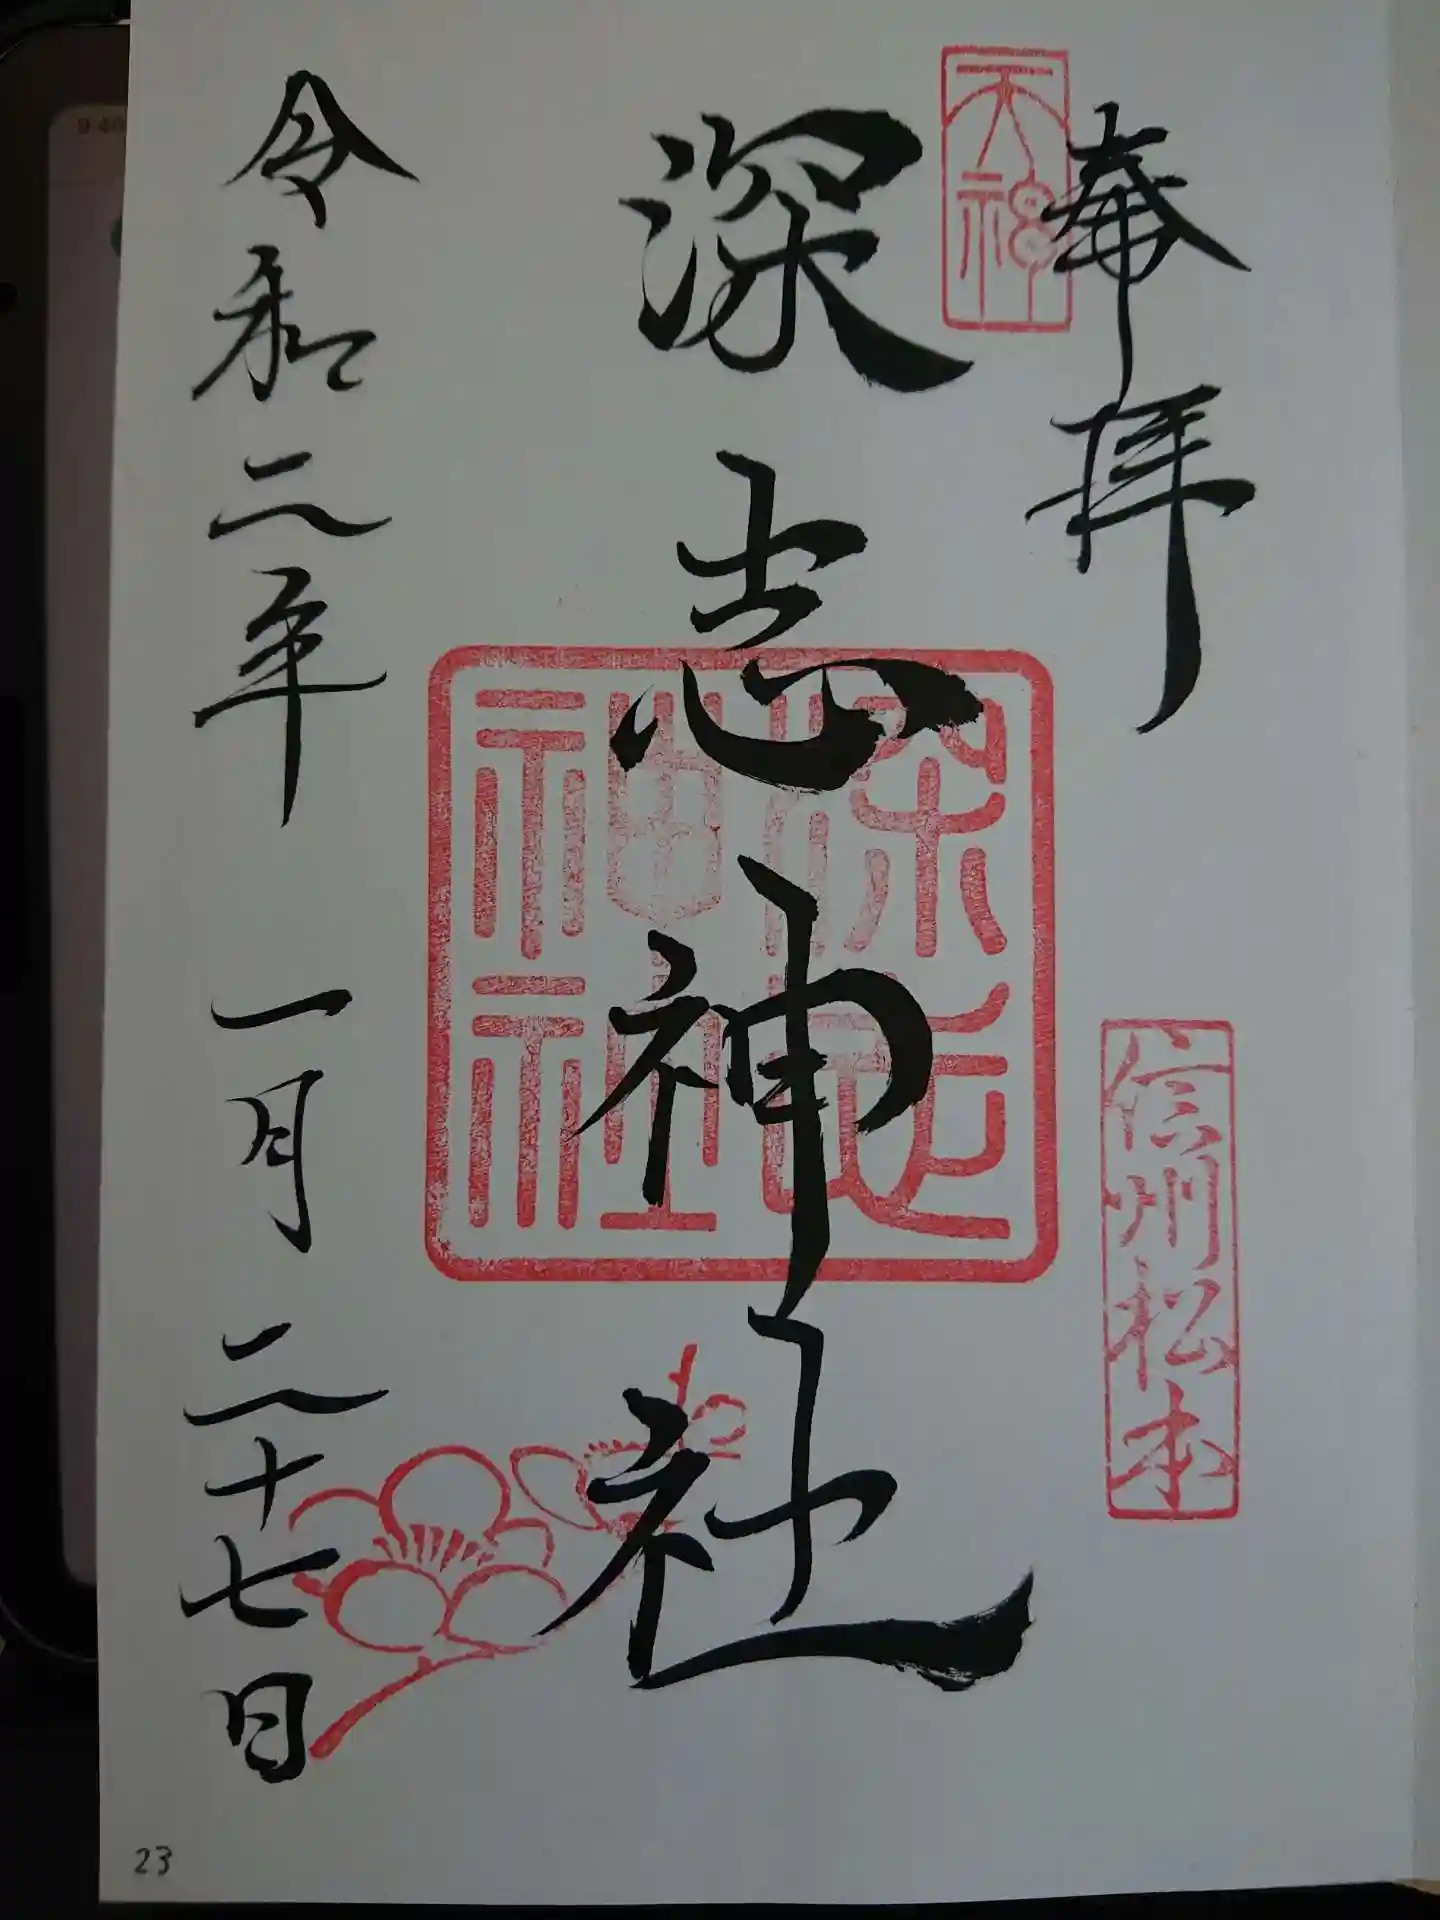 奉拝
天神
信州松本
深志神社
深志
神社
令和二年 一月 二十七日
23
9:46